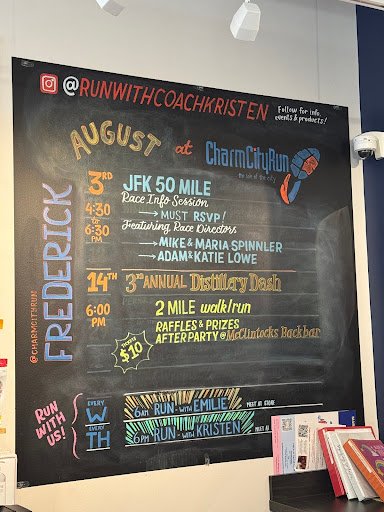 @RUNWITHCOACHKRISTEN
Follow for info,
events & products!
AUGUST at CharmCityRun
the sole of the city
FREDERICK
@CHARMCITYRUN
3RD JFK 50 MILE
4:30 Race Info Session
→ MUST RSVP!
6:30 PM Featuring Race Directors
→ MIKE & MARIA SPINNLER
→ ADAM & KATIE LOWE
14TH 3RD ANNUAL Distillery Dash
6:00 PM 2 MILE walk/run
RAFFLES & PRIZES
AFTER PARTY @ McClintocks Back bar
TICKETS $10
RUN WITH US!
EVERY W 6AM RUN - WITH EMILIE MEET AT STORE
EVERY TH 6PM RUN - WITH KRISTEN MEET AT